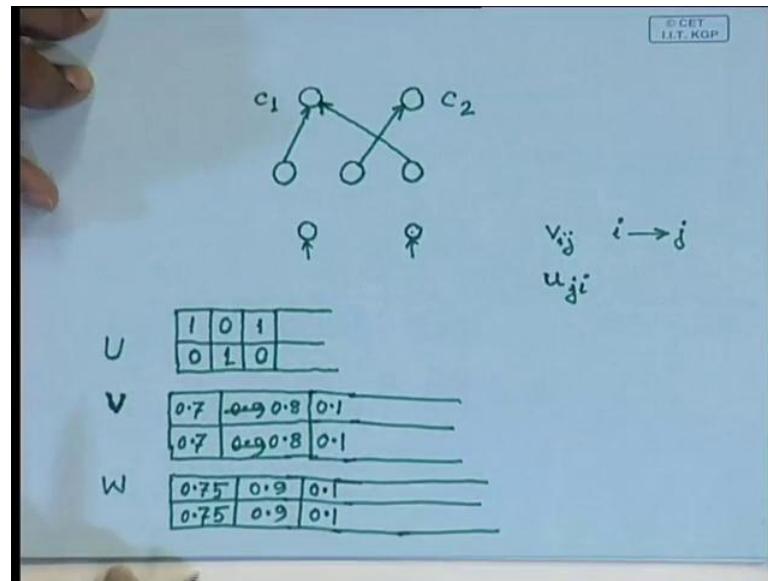 © CET
I.I.T. KGP
C1 C2
Vij i → j
uji
U
1 0 1
0 1 0
V
0.7 0.8 0.1
0.7 0.8 0.1
W
0.75 0.9 0.1
0.75 0.9 0.1